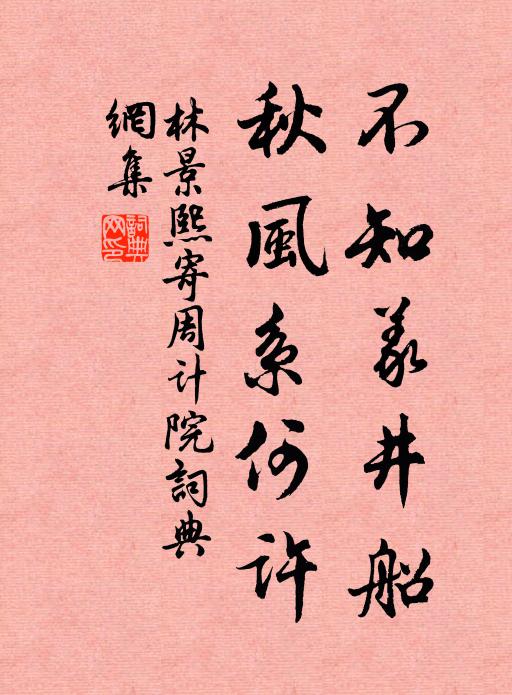 不知義井船
秋風系何許
林景熙寄周计院詞典
網集
詞典
网印